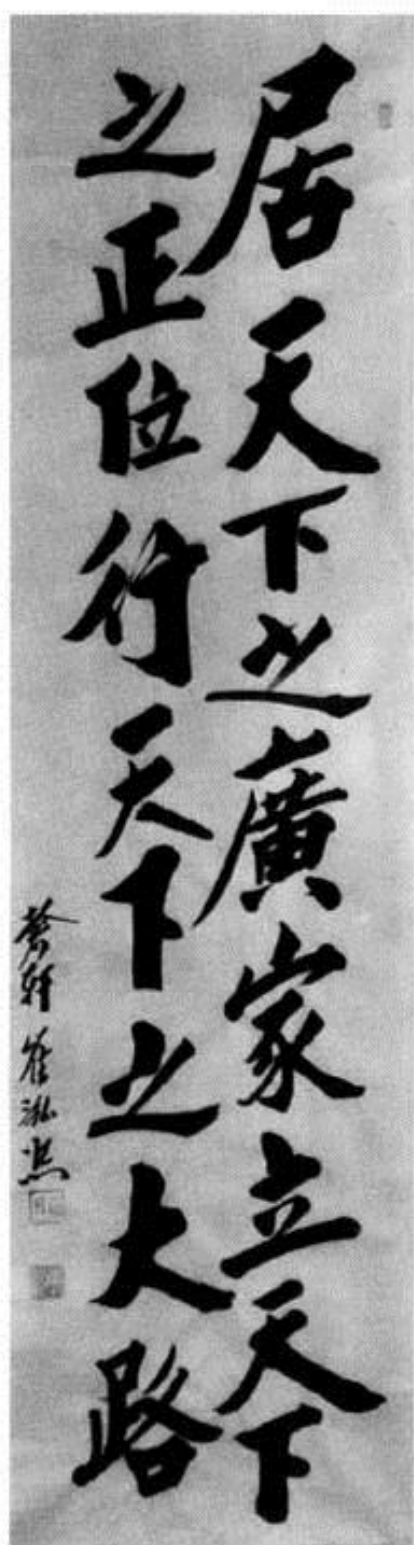 居天下之廣家立天下
之正位行天下之大路
軒崔泓熙